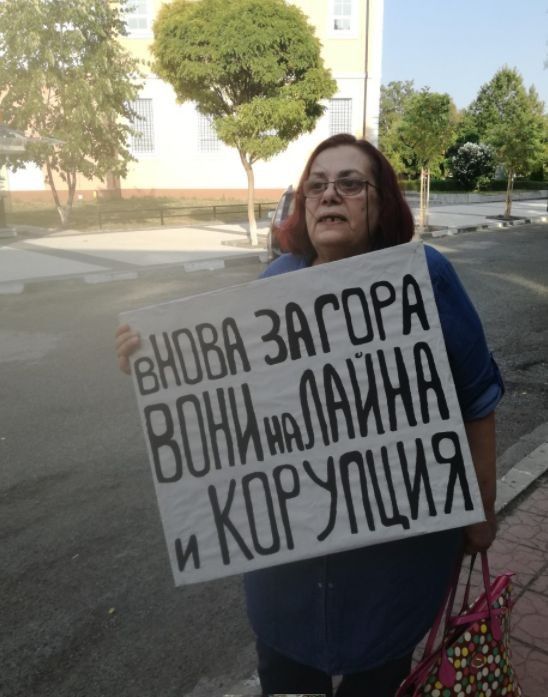 в НОВА ЗАГОРА
ВОНИ на ЛАЙНА
и КОРУПЦИЯ